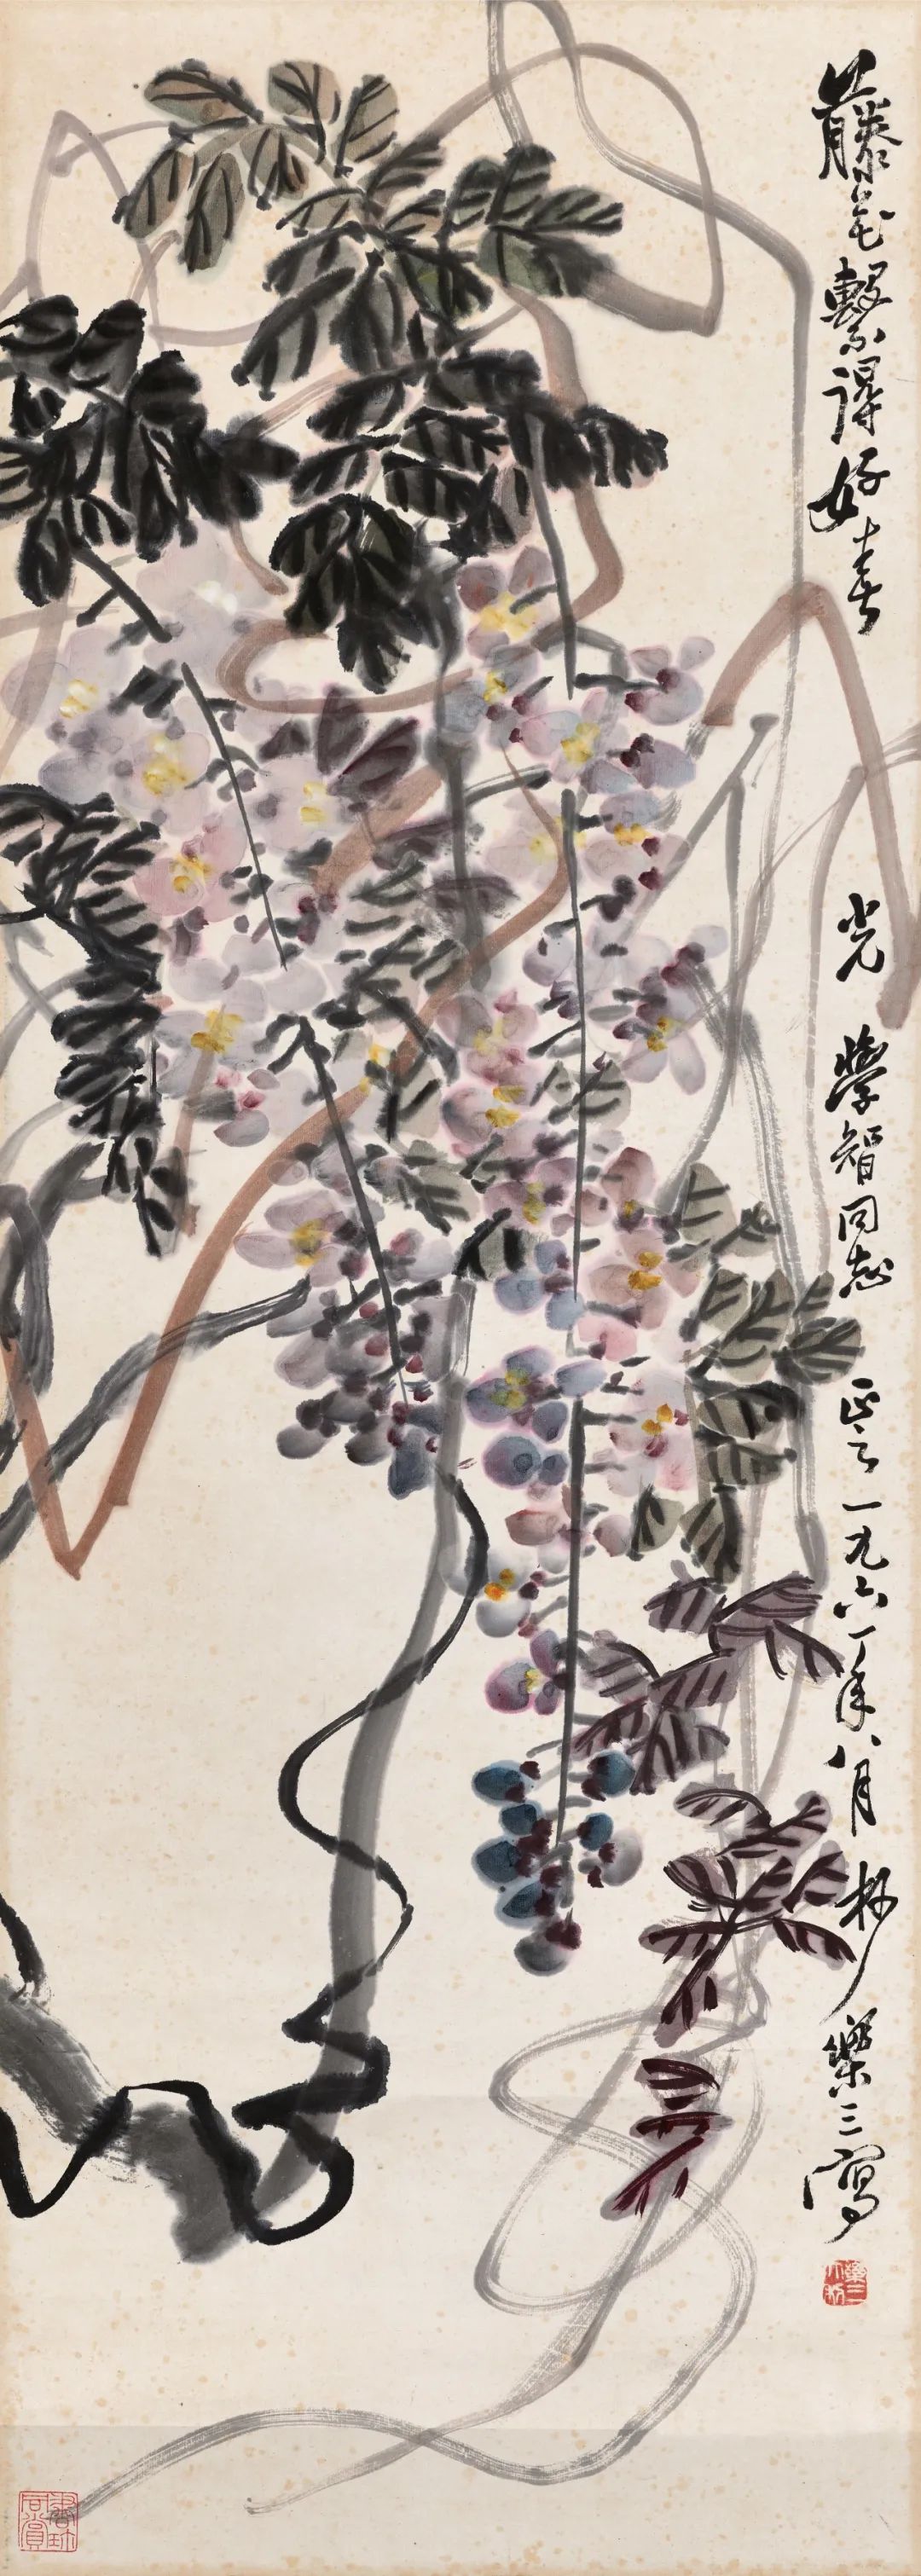 藤花繫得好春光 學智同志 正之 一九六一年八月杪 樂三寫